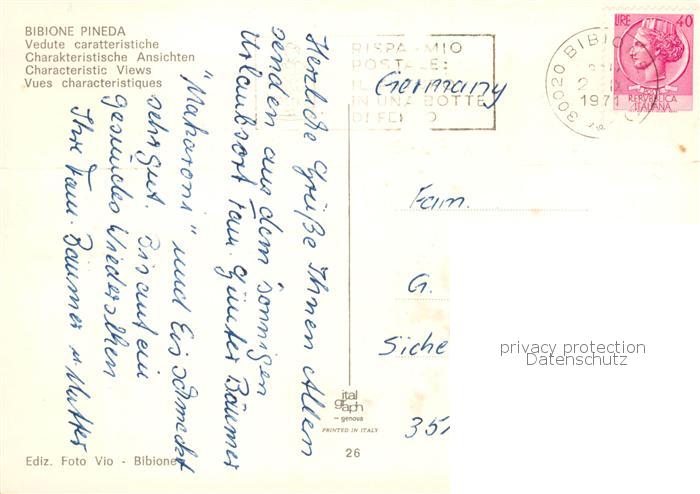 BIBIONE PINEDA
Vedute caratteristiche
Charakteristische Ansichten
Characteristic Views
Vues characteristiques
Herzliche Grüße Ihnen Allen
senden aus dem sonnigen
Urlaubsort Fam. Günter Bäumer
"Makaroni" und Eis schmeckt
sehr gut. Bis auf ein
gesundes Wiedersehen
Ihre Fam. Bäumer u. Mutter
RISPARMIO
POSTALE:
IN UNA BOTTE
DI FERRO
Germany
30020 BIBIONE
1971
LIRE 40
REPVBBLICA
ITALIANA
Fam.
G.
Siche
35
privacy protection
Datenschutz
ital
graph
- genova
PRINTED IN ITALY
26
Ediz. Foto Vio - Bibione